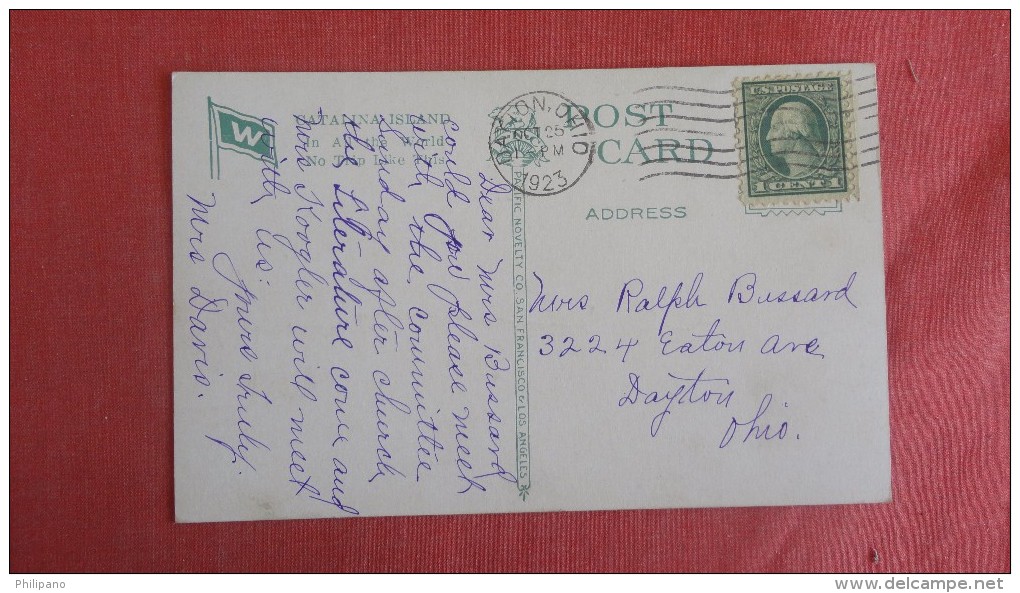 W
CATALINA ISLAND
In All the World
No Trip Like This
POST
CARD
DAYTON, OHIO
OCT 25
PM
1923
U.S. POSTAGE
1 CENT 1
ADDRESS
PACIFIC NOVELTY CO. SAN FRANCISCO & LOS ANGELES
Dear Mrs Bussard
could you please meet
with the committee
Sunday after church,
the Literature come and
Mrs Koogler will meet
with us:
yours truly.
Mrs Davis.
Mrs Ralph Bussard
3224 Eaton Ave
Dayton
Ohio.
Philipano
www.delcampe.net